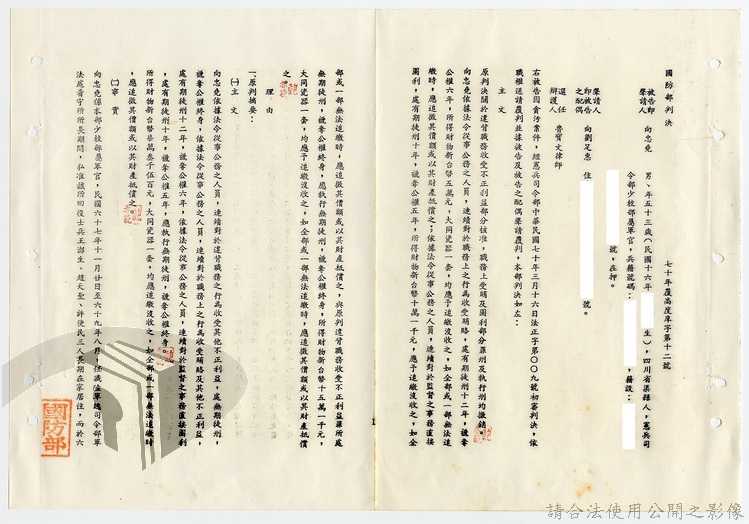 國防部判決
七十年覆高度庠字第十二號
被告即聲請人
向忠免
男、年五十三歲(民國十六年
生),四川省梁縣人,憲兵司
令部少校部屬軍官,兵籍號碼:
,籍設:
號,在押。
聲請人即被告之配偶
向劉足意
住
號。
選任辯護人
魯賢文律師
右被告因貪污案件,經憲兵司令部中華民國七十年三月十六日法正字第〇〇九號初審判決,依
職權送請覆判並據被告及被告之配偶聲請覆判,本部判決如左:
主文
原判決關於違背職務收受不正利益部分核准,職務上受賄及圖利部分罪刑及執行刑均撤銷。
向忠免依據法令從事公務之人員,連續對於職務上之行為收受賄賂,處有期徒刑十二年,褫奪
公權六年,所得財物新台幣五萬元,大同瓷器一套,均應予追繳沒收之,如全部或一部無法追
繳時,應追徵其價額或以其財產抵償之;依據法令從事公務之人員,連續對於監督之事務直接
圖利,處有期徒刑十年,褫奪公權五年,所得財物新台幣十萬一千元,應予追繳沒收之,如全
部或一部無法追繳時,應追徵其價額或以其財產抵償之,與原判違背職務收受不正利益罪所處
無期徒刑,褫奪公權終身,應執行無期徒刑,褫奪公權終身,所得財物新台幣十五萬一千元,
大同瓷器一套,均應予追繳沒收之,如全部或一部無法追繳時,應追徵其價額或以其財產抵償
之。
理由
一、原判摘要:
㈠主文
向忠免依據法令從事公務之人員,連續對於違背職務之行為收受其他不正利益,處無期徒刑,
褫奪公權終身,依據法令從事公務之人員,連續對於職務上之行為收受賄賂及其他不正利益,
處有期徒刑十二年,褫奪公權六年,依據法令從事公務之人員,連續對於監督之事務直接圖利
,處有期徒刑十年,褫奪公權五年,應執行無期徒刑,褫奪公權終身。
所得財物新台幣拾萬叁千伍百元,大同瓷器一套,均應追繳沒收之,如全部或一部無法追繳時
,應追徵其價額或以其財產抵償之。
㈡事實
向忠免係本部少校部屬軍官,民國六十七年十一月廿日至六十九年八月,任職法軍總司令部軍
法處看守所所長期間,私准該所回役士兵王澍生、趙天聖、許使民三人長期在家居住,而於六
國防部
1
請合法使用公開之影像